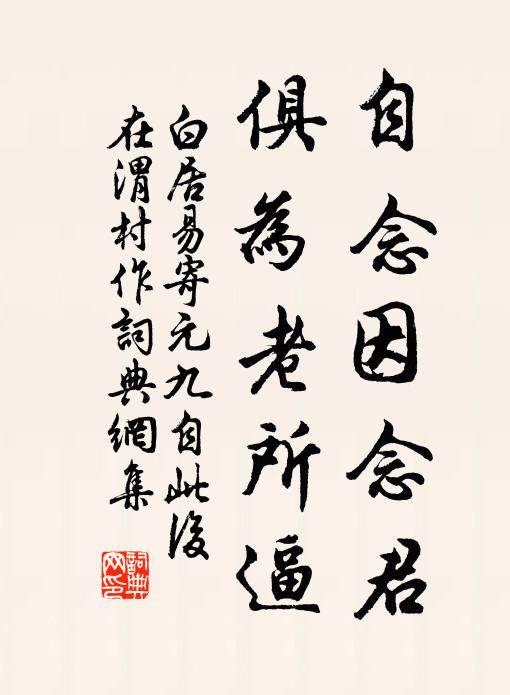 自念因念君
俱為老所逼
白居易寄元九自此後
在渭村作詞典網集
詞典網印